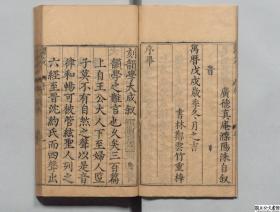 廣德真庵濮陽淶自叙
音
萬曆戊戌歲季冬月之吉
書林鄭雲竹重梓
序畢
刻韻學大成叙
韻學之難言也久矣三百篇
上自王公大人下至婦人竪
子莫不有自然之聲以是音
律和暢可被管絃聖人列之
六經至晉沈約氏而四聲出